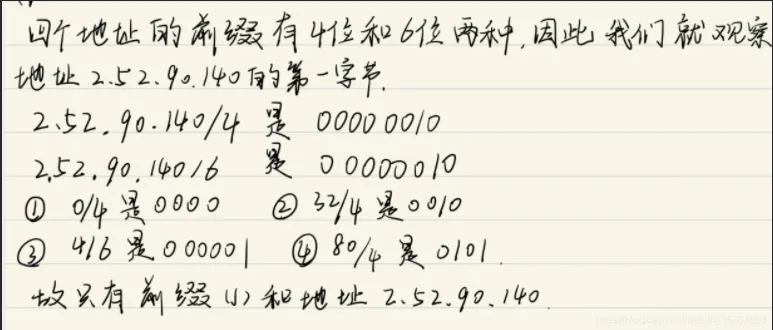 四个地址的前缀有4位和6位两种,因此我们就观察
地址2.52.90.140的第一字节.
2.52.90.140/4 是 00000010
2.52.90.140/6 是 00000010
① 0/4是0000 ② 32/4是0010
③ 4/6是000001 ④ 80/4是0101.
故只有前缀(1)和地址2.52.90.140.